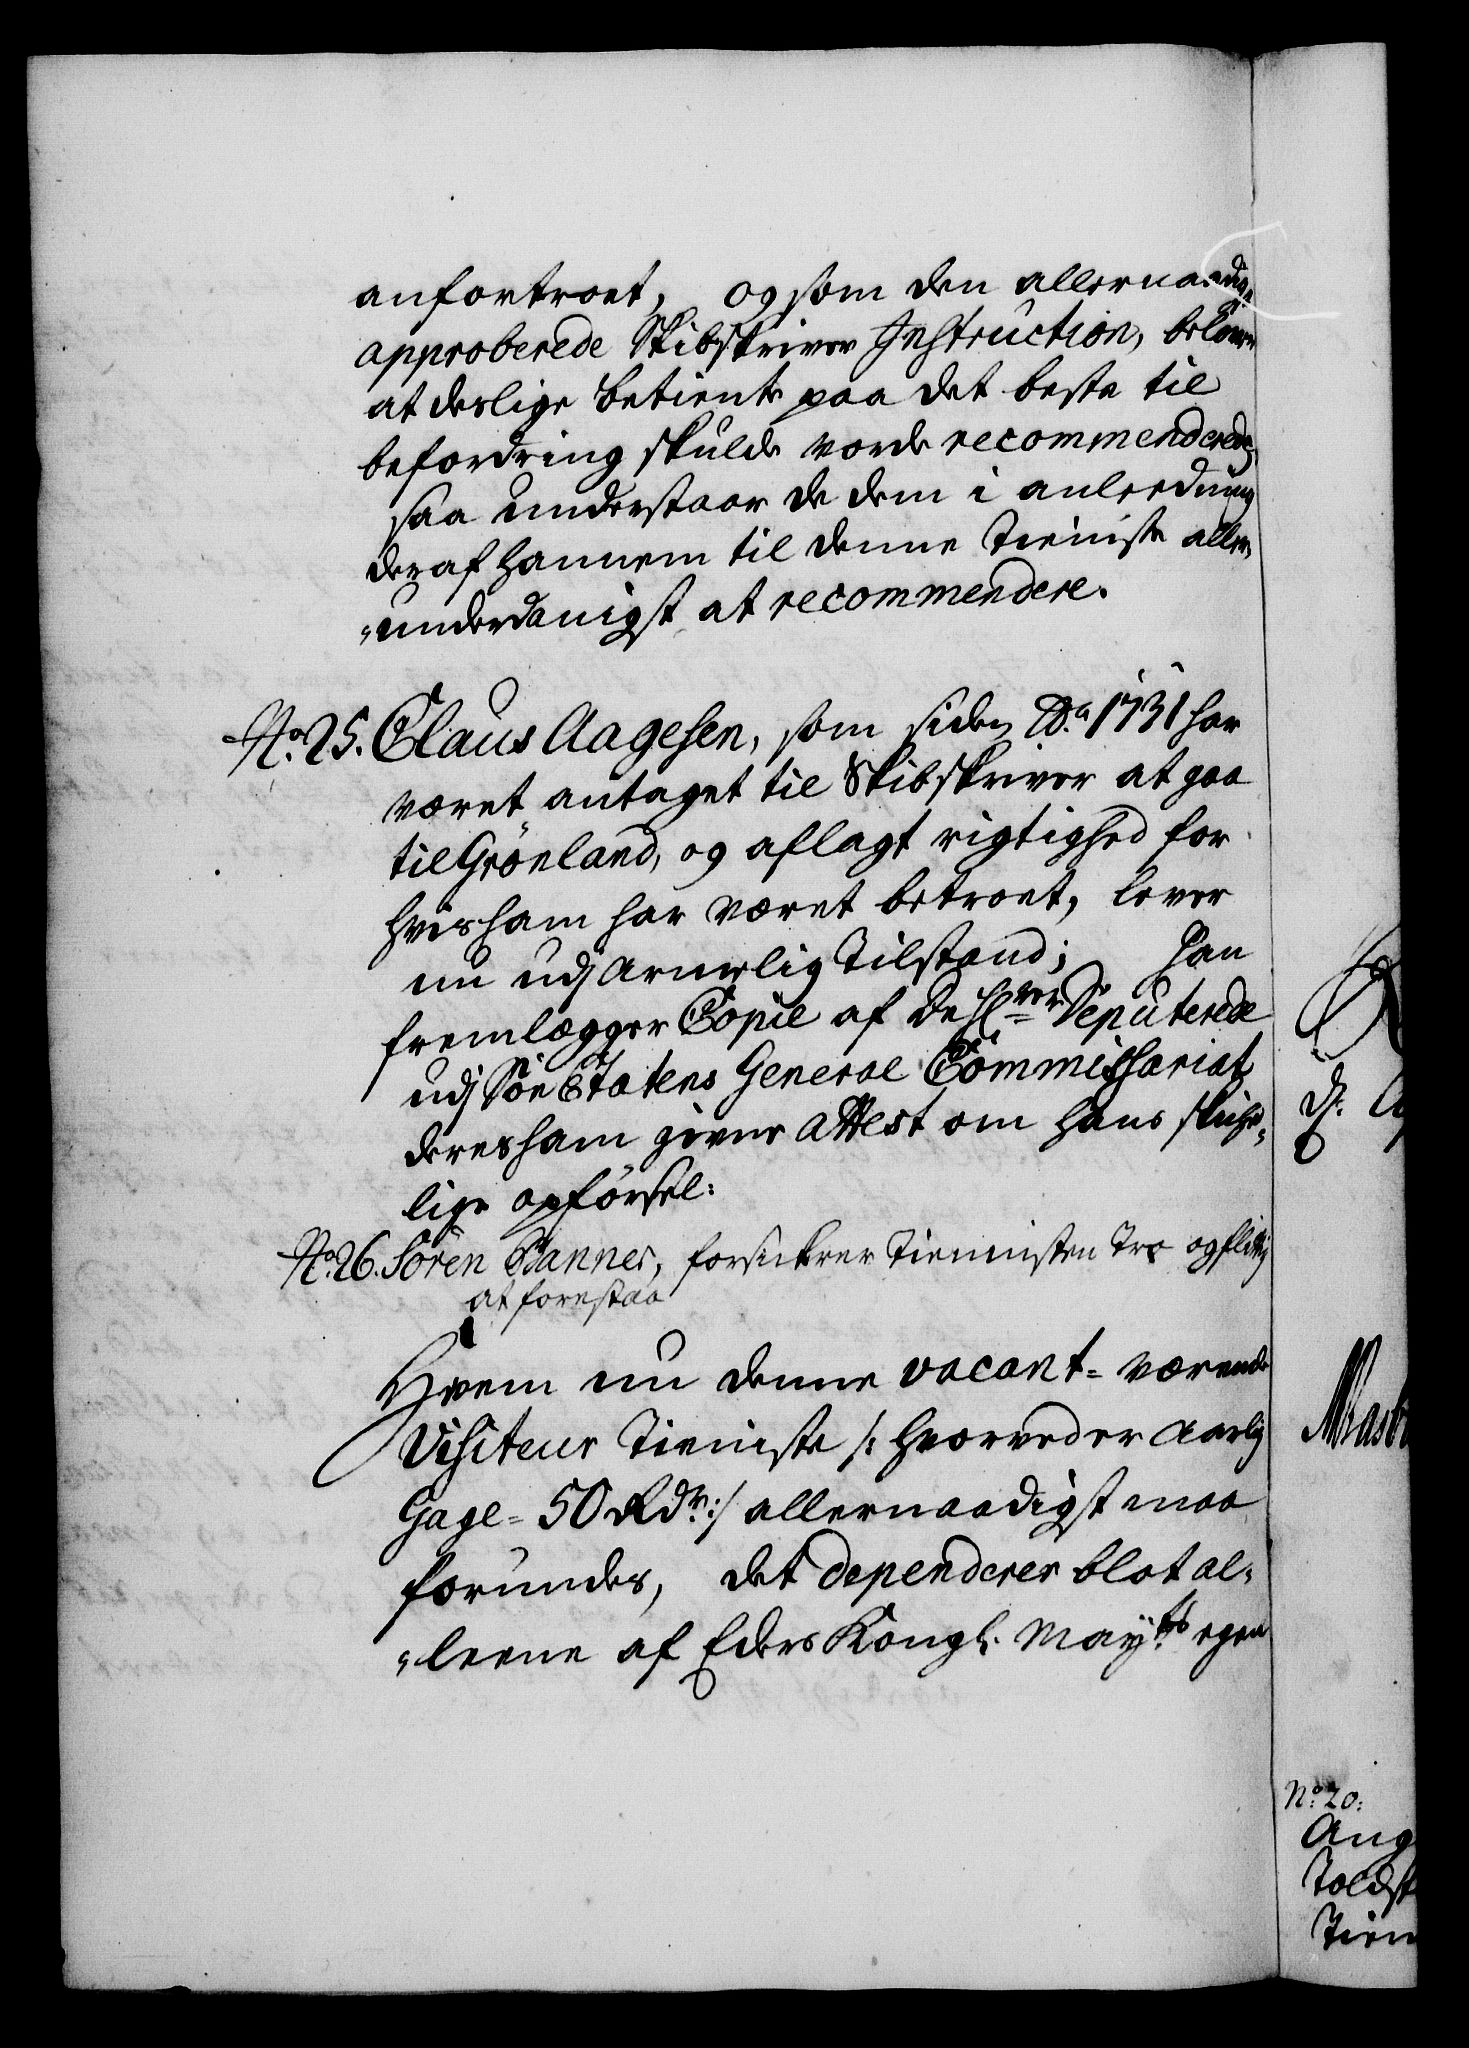 anfortroet, og som den allernaadigst
approberede Skibskriver Instruction, belover
at deslige betiente paa det beste til
befordring skulde vorde recommenderede,
saa understaar de dem i anleedning
deraf hannem til denne Tieniste aller,
„underdanigst at recommendere.
No. 25. Claus Aagesen, som siden Ao. 1731 har
været antaget til Skibskriver at gaa
til Grønland, og aflagt rigtighed for
hvis ham har været betroet, lever
nu udj armelig Tilstand; Han
fremlægger Copie af de Hl=rer Deputerede
udj Söe Etatens General Commissariat,
deres ham givne attest om hans skike,
lige opförsel:
No. 26. Sören Bannes, forsickrer Tienniesten Tro og flittig
at forestaa
Hvem nu denne vacant=værende
Visiteur Tieniste /: hvorved er aarlig
Gage= 50 Rdr:/ allernaadigst maa
forundes, det dependerer blot al=
„leene af Eders Kongl. Mayts egen
No. 20:
Ang
Toldst
Tien